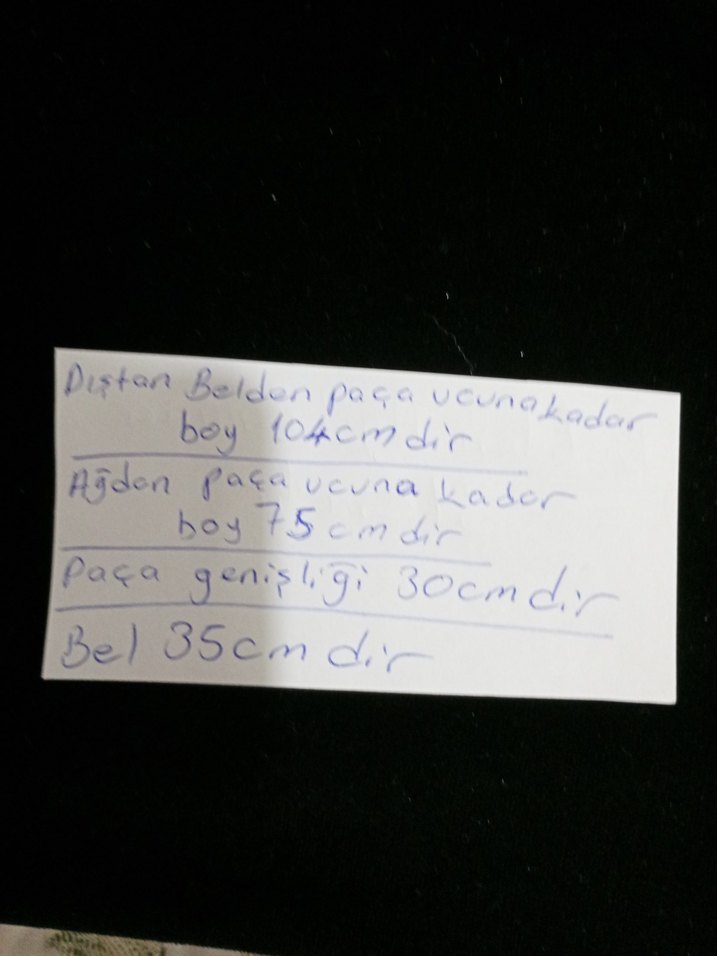 Dıştan Belden paça ucuna kadar
boy 104 cm dir
Ağdan paça ucuna kadar
boy 75 cm dir
Paça genişliği 30 cm dir
Bel 35 cm dir